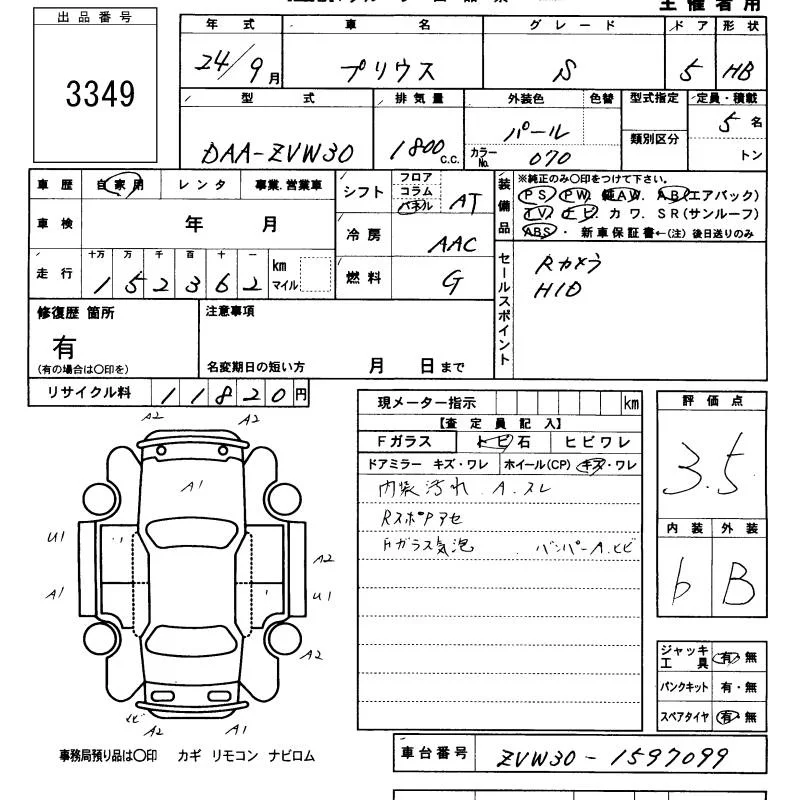 主催者用
出品番号
3349
年式 車名 グレード ドア 形状
24/9月 プリウス S 5 HB
型式 排気量 外装色 色替 型式指定 定員・積載
DAA-ZVW30 1800 C.C. パール 5名
カラーNo. 070 類別区分 トン
車歴 自家用 レンタ 事業.営業車
シフト フロア コラム パネル AT
車検 年 月
冷房 AAC
走行 十万 万 千 百 十 一
152362 km マイル
燃料 G
装備品 ※純正のみ〇印をつけて下さい。
PS PW. 純AW. AB(エアバック)
TV. ナビ. カワ. SR(サンルーフ)
ABS ・ 新車保証書←(注) 後日送りのみ
セールスポイント
Rカメラ
HID
修復歴 箇所 注意事項
有
(有の場合は〇印を) 名変期日の短い方 月 日まで
リサイクル料 11820円
現メーター指示 km
【査定員記入】
Fガラス トビ石 ヒビワレ
ドアミラー キズ・ワレ ホイール(CP) キズ・ワレ
内装汚れ A.スレ
RスポPアセ
Fガラス気泡 バンパーA.ヒビ
評価点
3.5
内装 外装
b B
A2 A2
A1
U1 A2
A1 U1
A2
ヒビ A2 A1
ジャッキ 工具 有・無
パンクキット 有・無
スペアタイヤ 有・無
事務局預り品は〇印 カギ リモコン ナビロム
車台番号 ZVW30-1597099